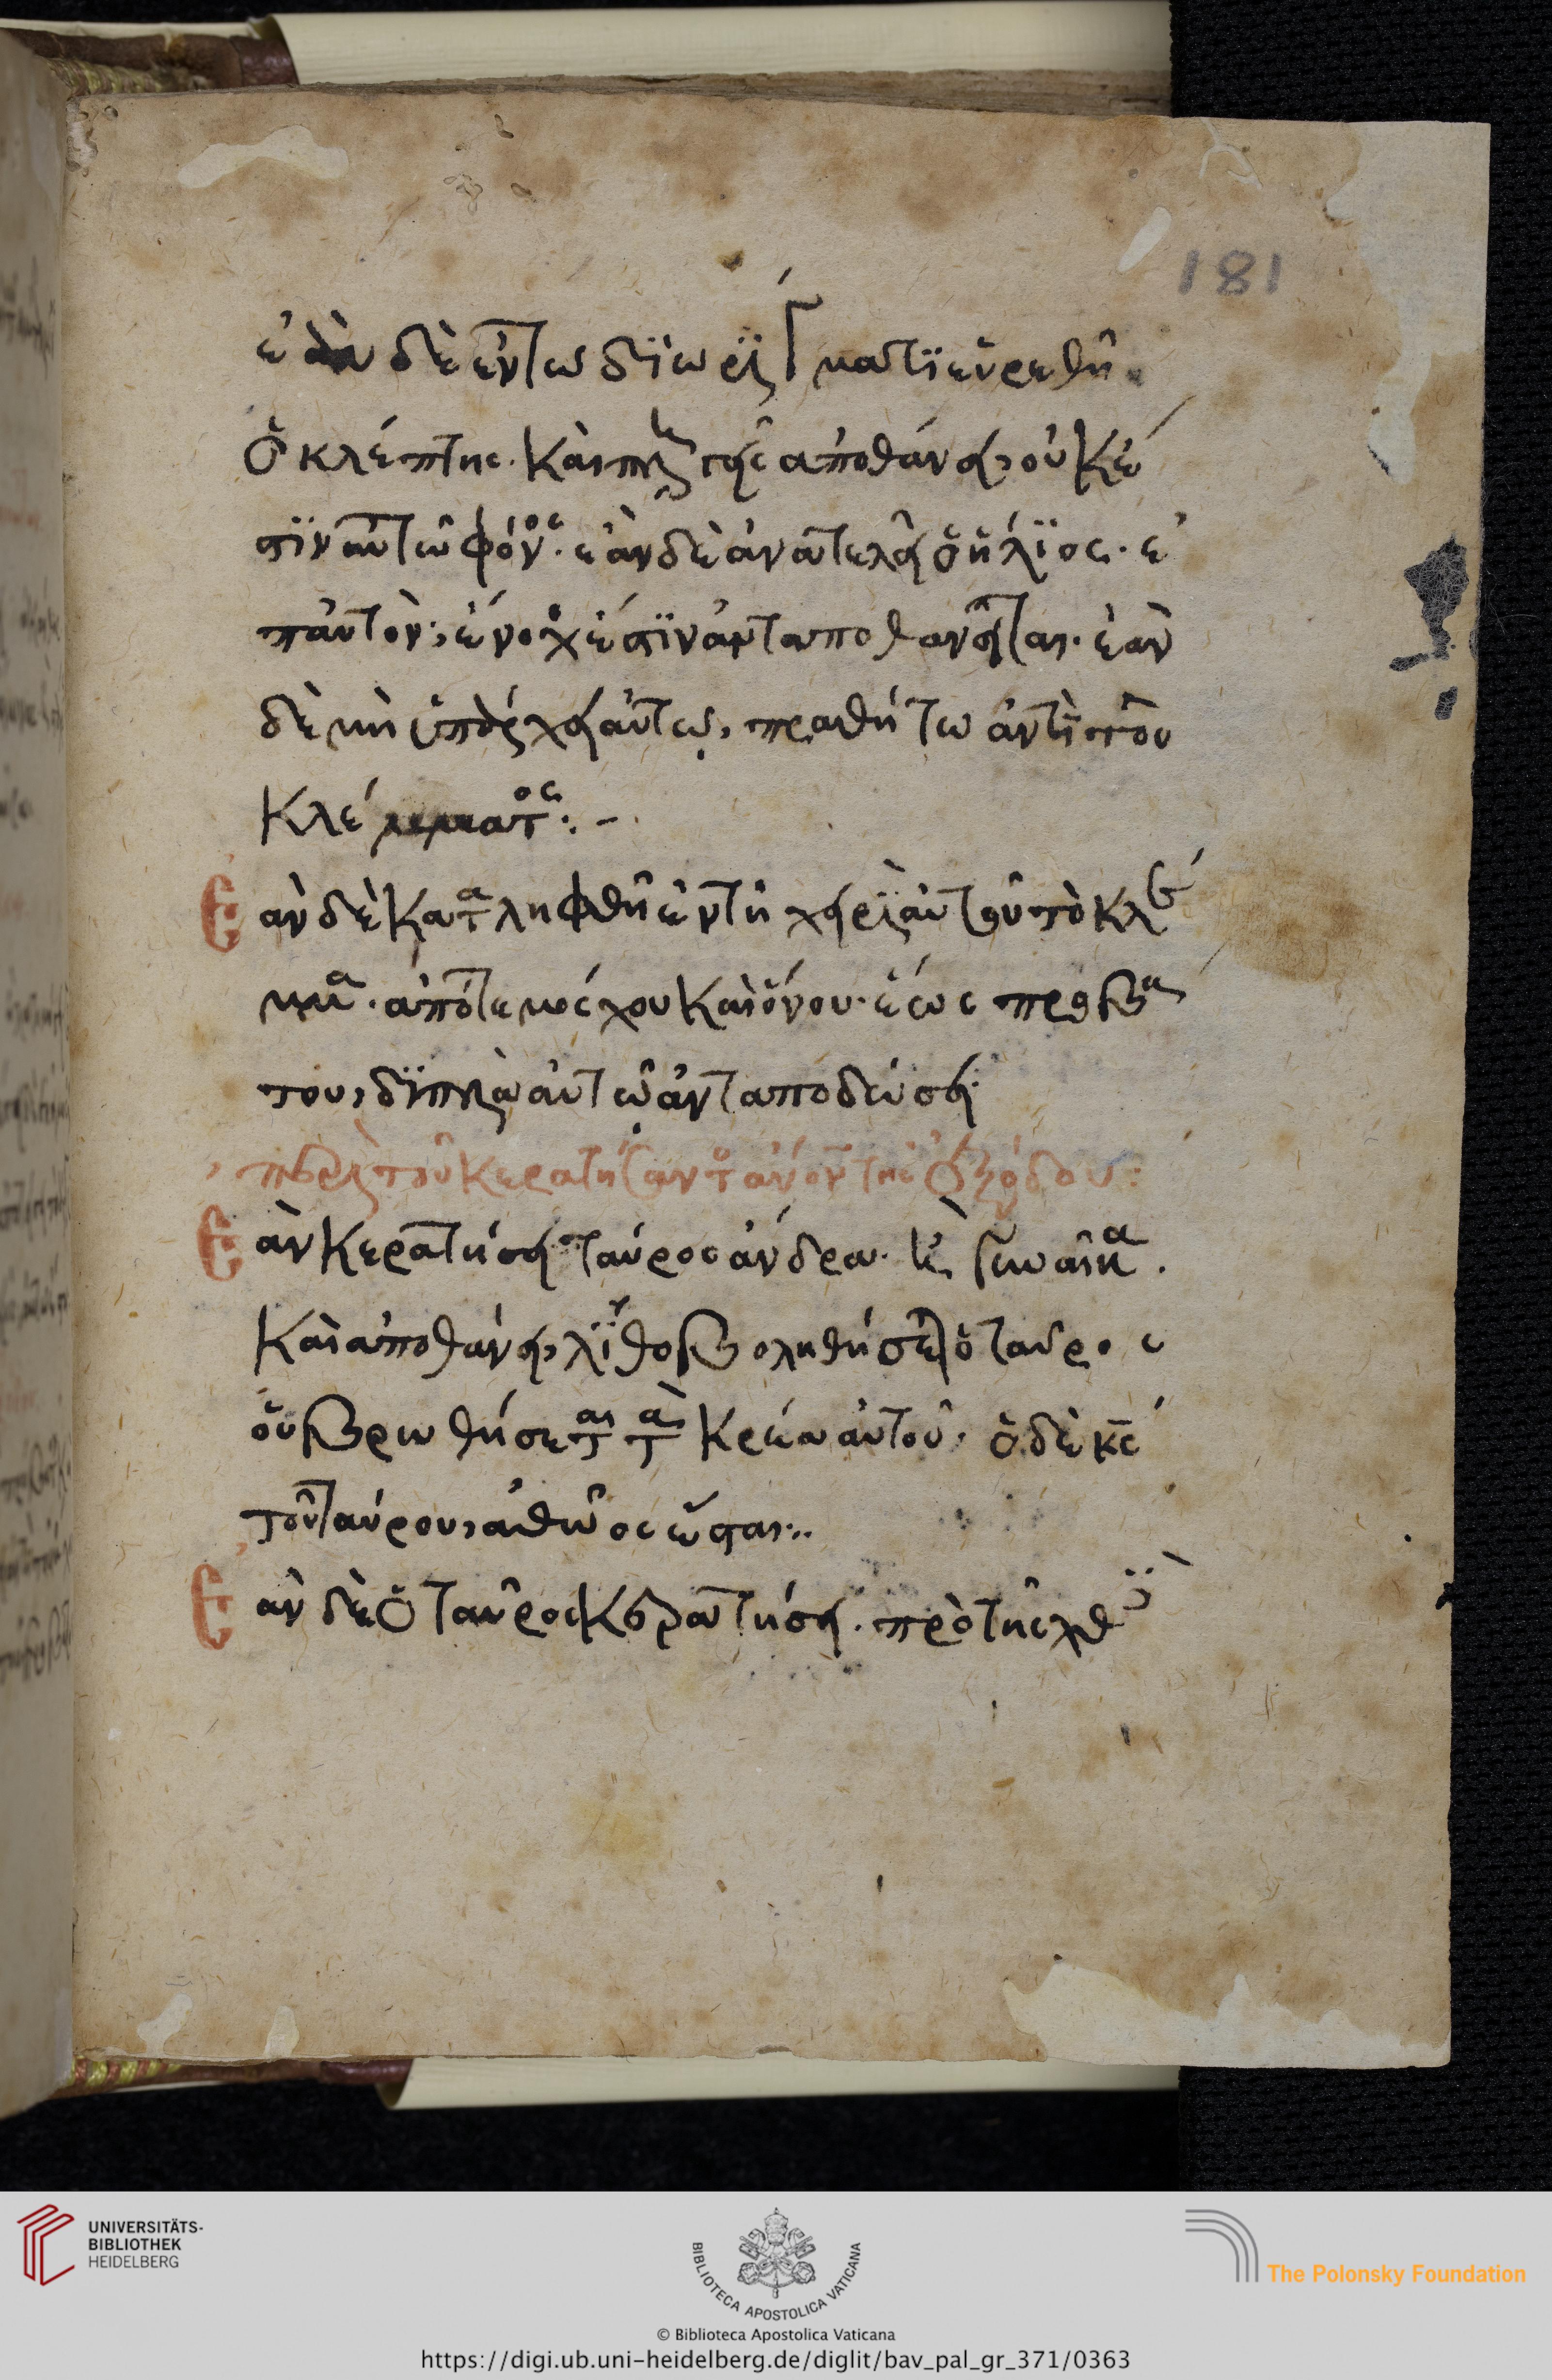 181
ἐὰν δὲ ἐν τω διωρίγματι εὑρεθῆ
ὁ κλέπτης. καὶ πληγεὶς ἀποθάνει, οὐκ ἔ
στιν αὐτῶ φόνος. ἐὰν δὲ ἀνατείλῃ ὁ ἥλιος. ἐ
π αὐτὸν, ἔνοχός ἐστιν ἀνταποθανεῖται. ἐὰν
δὲ μὴ ὑπάρχει αὐτω, πραθήτω ἀντὶ τοῦ
κλέμματος:-
Εὰν δὲ καταληφθῆ ἐν τῆ χειρὶ αὐτοῦ τὸ κλέ
μμα. ἀπό τε μόσχου καὶ ὄνου. ἕως προβά
του, διπλὰ αὐτῶ ἀνταποδώσει
περὶ τοῦ κερατήσαντος
Εὰν κερατήσει ταύρος ἄνδρα. ἢ γυναῖκα.
καὶ ἀποθάνει, λιθοβοληθήσεται ὁ ταῦρος
οὐ βρωθήσεται τὰ κρέα αὐτοῦ. ὁ δὲ κς
τοῦ ταύρου, ἀθῶος ἔσται:.
Εὰν δὲ ὁ ταῦρος κερατήσει. πρὸ τῆς χθὲς
UNIVERSITÄTS-
BIBLIOTHEK
HEIDELBERG
BIBLIOTECA APOSTOLICA VATICANA
The Polonsky Foundation
© Biblioteca Apostolica Vaticana
https://digi.ub.uni-heidelberg.de/diglit/bav_pal_gr_371/0363